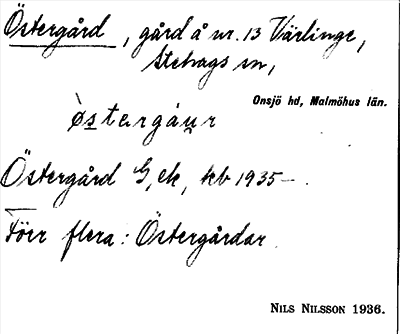 Östergård, gård å nr. 13 Värlinge,
Stehags sn,
Onsjö hd, Malmöhus län.
ø̀stərgáu̯r
Östergård G, ek, kb 1935–.
Förr flera: Östergårdar.
NILS NILSSON 1936.